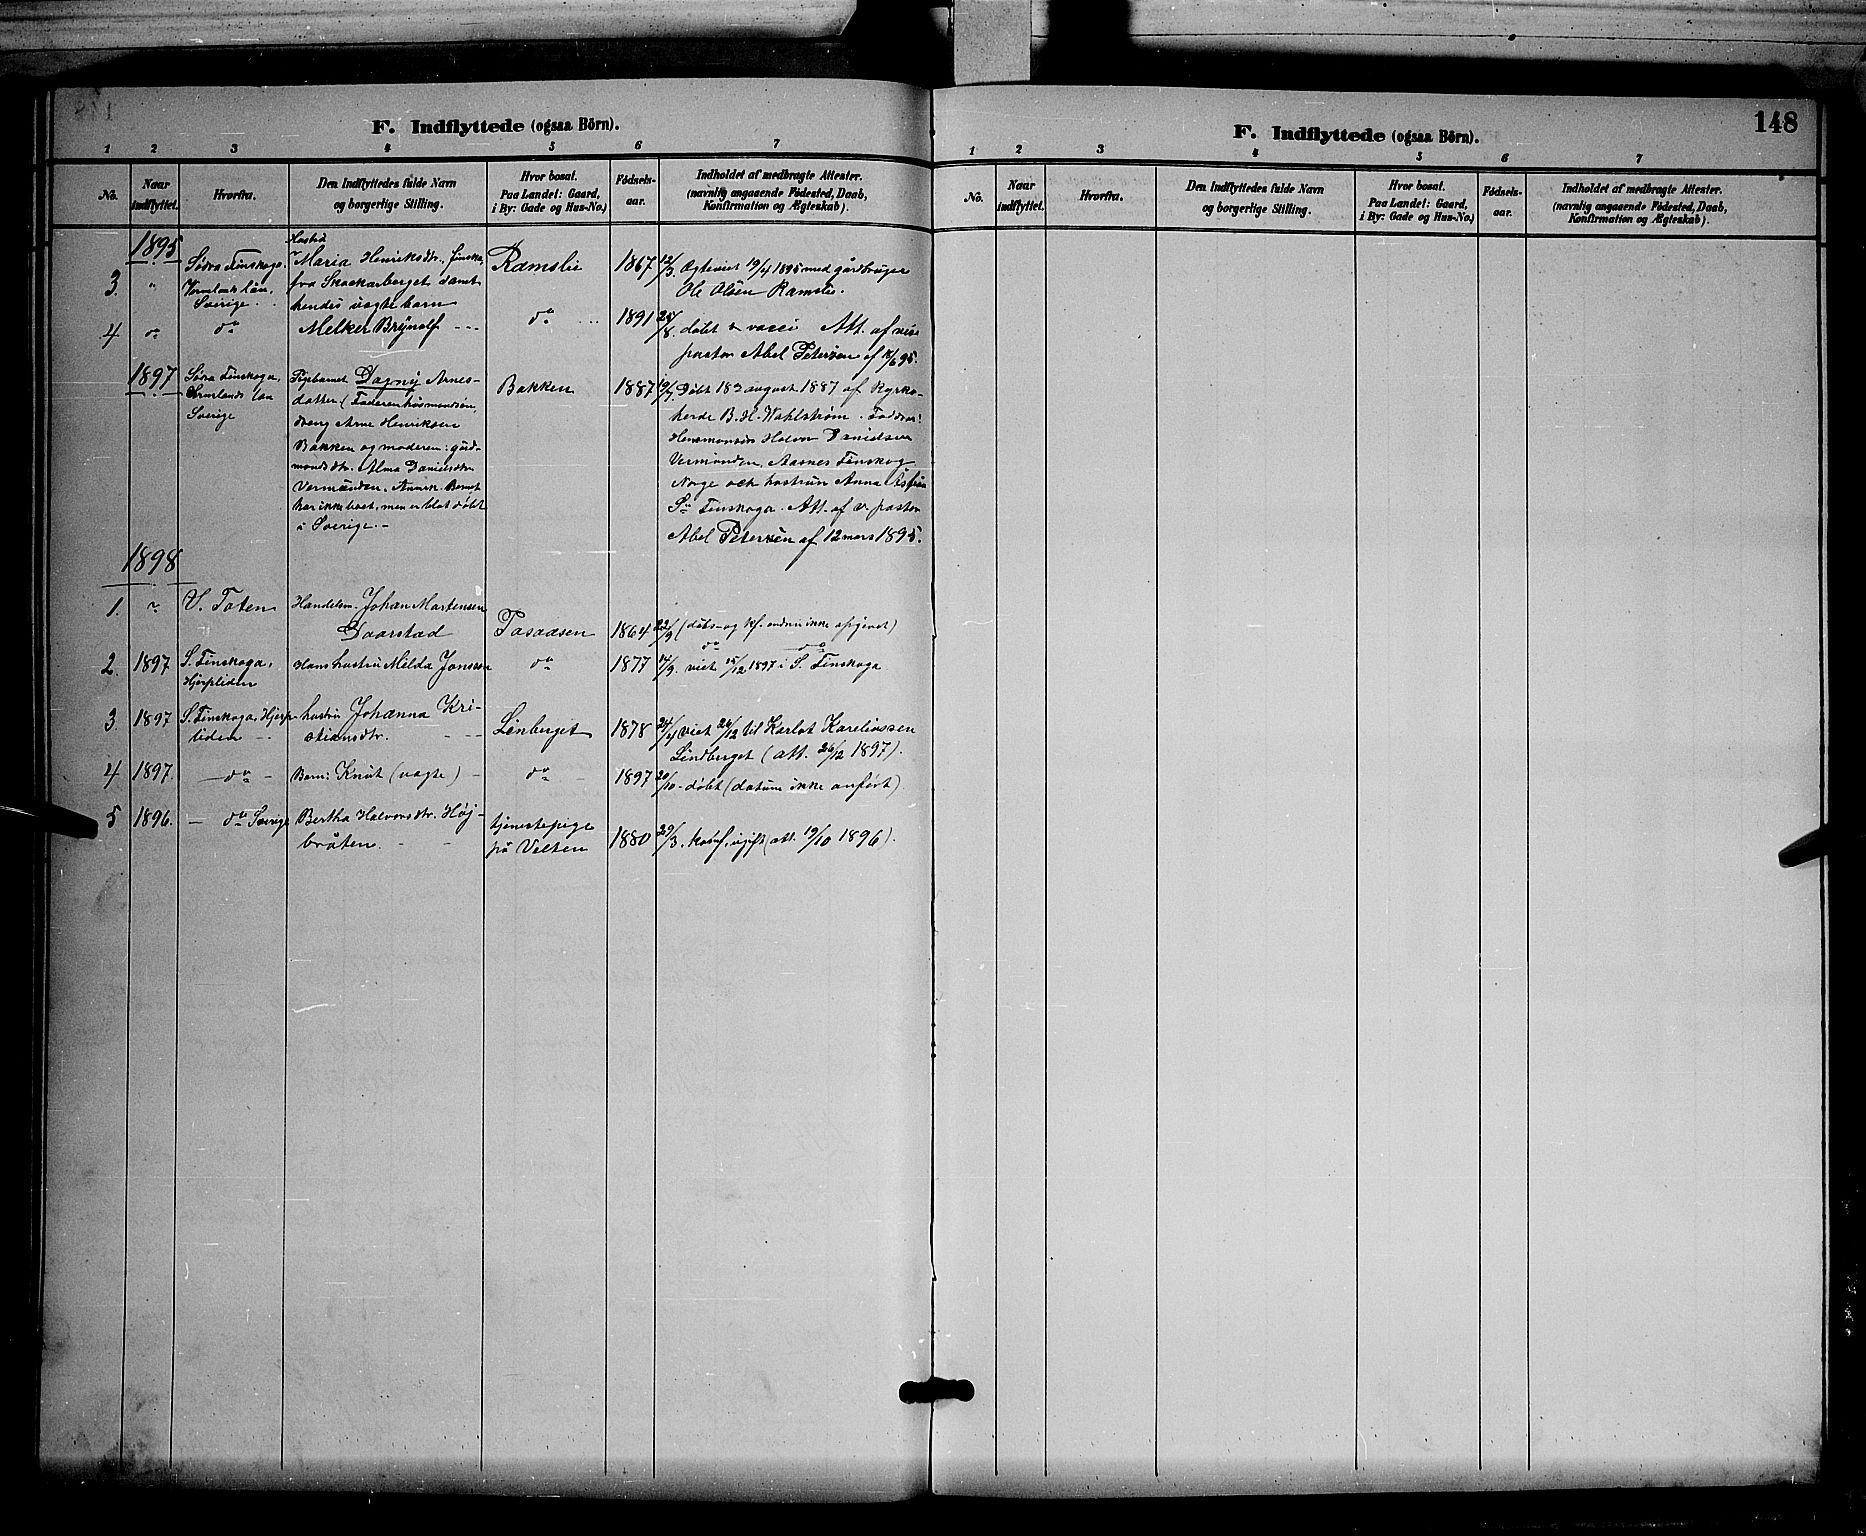 F. Indflyttede (ogsaa Börn).
1 2 3 4 5 6 7
No. Naar indflyttet. Hvorfra. Den Indflyttedes fulde Navn og borgerlige Stilling. Hvor bosat. Paa Landet: Gaard, i By: Gade og Hus-No.) Fødsels-aar. Indholdet af medbragte Attester. (navnlig angaaende Fødested, Daab, Konfirmation og Ægteskab).
1895
3. " Södra Finskoga, Vermlands län, Sverige. Hustru Maria Henriksdtr., finska, fra Skackarberget samt hendes uægte barn Ramslie 1867 12/3. Egteviet 19/4 1895 med gårdbruger Ole Olsen Ramslie.
4 do do Melker Brynolf --- do 1891 24/8. døbt & vacci Att. af vice pastor Abel Petersen af 11/6 95.
1897 Södra Finskoga, Vermlands län Sverige Pigebarnet Dagny Arnes-
datter (Faderen husmandsøn,
dreng Arne Henriksen
Bakken og moderen: gård-
mandsdtr. Alma Danielsdtr.
Vermunden. Anmrk. Barnet
har ikke boet, men er blot døbt
i Sverige. -
Bakken 1887 19/7. Døbt 183 august 1887 af Kyrko-
herde B. H. Wahlstrøm. Faddrar:
Halvor Danielsen
Vermunden, Aasnes Finskog
Norge och hustrun Anna
Sa Finskoga. Att. af v. pastor
Abel Petersen af 12 mars 1895.
1898
1. " V. Toten Handelsm. Johan Martensen
Daarstad Tasaasen 1864 22/9 (døbs- og kf. endnu ikke opgivet)
2. 1897 S. Finskoga, Hjerpliden Hans hustru Milda Jonsson do 1877 14/9. do do viet 15/12 1897 i S. Finskoga
3 1897 S. Finskoga, Hjerp-
liden - . hustru Johanna Kri-
stiansdtr. - - - Linberget 1878 24/4 viet 26/12 til Karlot Kareliussen
Lindberget (att. 26/12 1897).
4 1897. - do - Barn: Knut (uægte) - do - 1897 20/10 - døbt (datum ikke anført)
5 1896. - do Sverige Bertha Halvorsdtr. Høj-
bråten. - - tjenestepige
på Velten 1880 29/3. konf., ugift (att. 19/10 1896).
148
F. Indflyttede (ogsaa Börn).
1 2 3 4 5 6 7
No. Naar indflyttet. Hvorfra. Den Indflyttedes fulde Navn og borgerlige Stilling. Hvor bosat. Paa Landet: Gaard, i By: Gade og Hus-No.) Fødsels-aar. Indholdet af medbragte Attester. (navnlig angaaende Fødested, Daab, Konfirmation og Ægteskab).